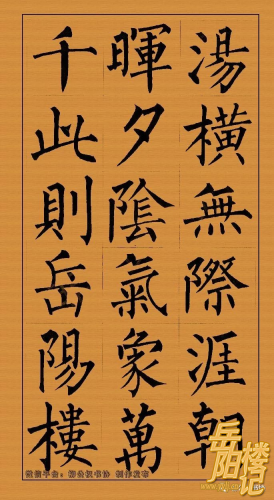 湯橫無際涯朝
暉夕陰氣象萬
千此則岳陽樓
岳阳楼记